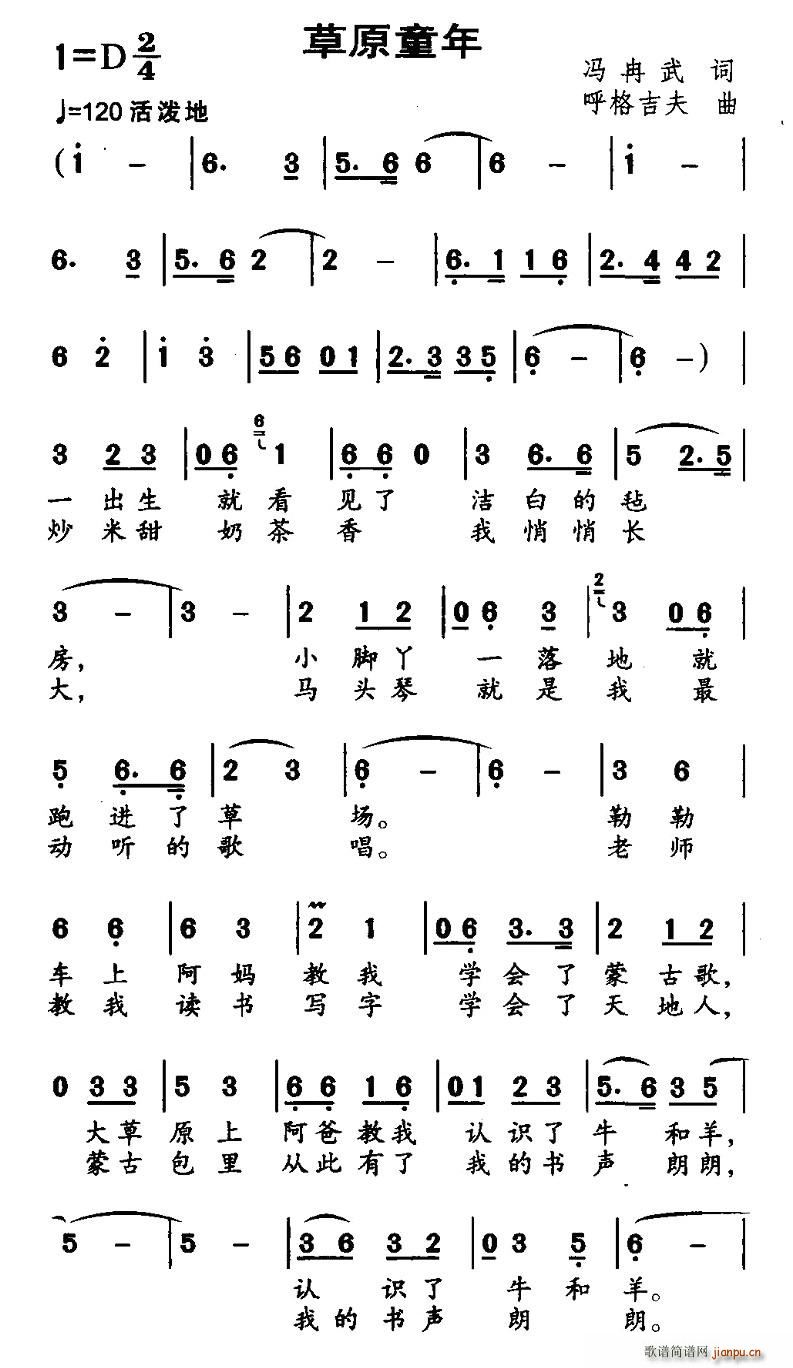 草原童年
1=D 2/4
冯冉武 词
♩=120 活泼地
呼格吉夫 曲
(i̇ - | 6. 3 | 5. 6 6 | 6 - | i̇ - |
6. 3 | 5. 6 2 | 2 - | 6̣. 1 1 6̣ | 2. 4 4 2 |
6 2̇ | i̇ 3̇ | 5 6 0 1 | 2. 3 3 5̣ | 6̣ - | 6̣ -) |
3 2 3 | 0 6̣ 6 1 | 6̣ 6̣ 0 | 3 6̣. 6̣ | 5 2. 5̣ |
一出生 就看 见了 洁白的毡
炒米甜 奶茶 香 我悄悄长
3 - | 3 - | 2 1 2 | 0 6̣ 3 | 2 3 0 6̣ |
房, 小脚丫 一落 地 就
大, 马头琴 就是 我 最
5̣ 6̣. 6̣ | 2 3 | 6̣ - | 6̣ - | 3 6 |
跑进了草 场。 勒勒
动听的歌 唱。 老师
6 6̣ | 6 3 | 2 1 | 0 6̣ 3. 3 | 2 1 2 |
车上 阿妈 教我 学会了蒙古歌,
教我 读书 写字 学会了天地人,
0 3 3 | 5 3 | 6̣ 6̣ 1 6̣ | 0 1 2 3 | 5. 6 3 5 |
大草 原上 阿爸教我 认识了牛 和羊,
蒙古 包里 从此有了 我的书声 朗朗,
5 - | 5 - | 3 6 3 2 | 0 3 5̣ | 6̣ - |
认 识了 牛和羊。
我的书声 朗 朗。
歌谱简谱网
jianpu.cn